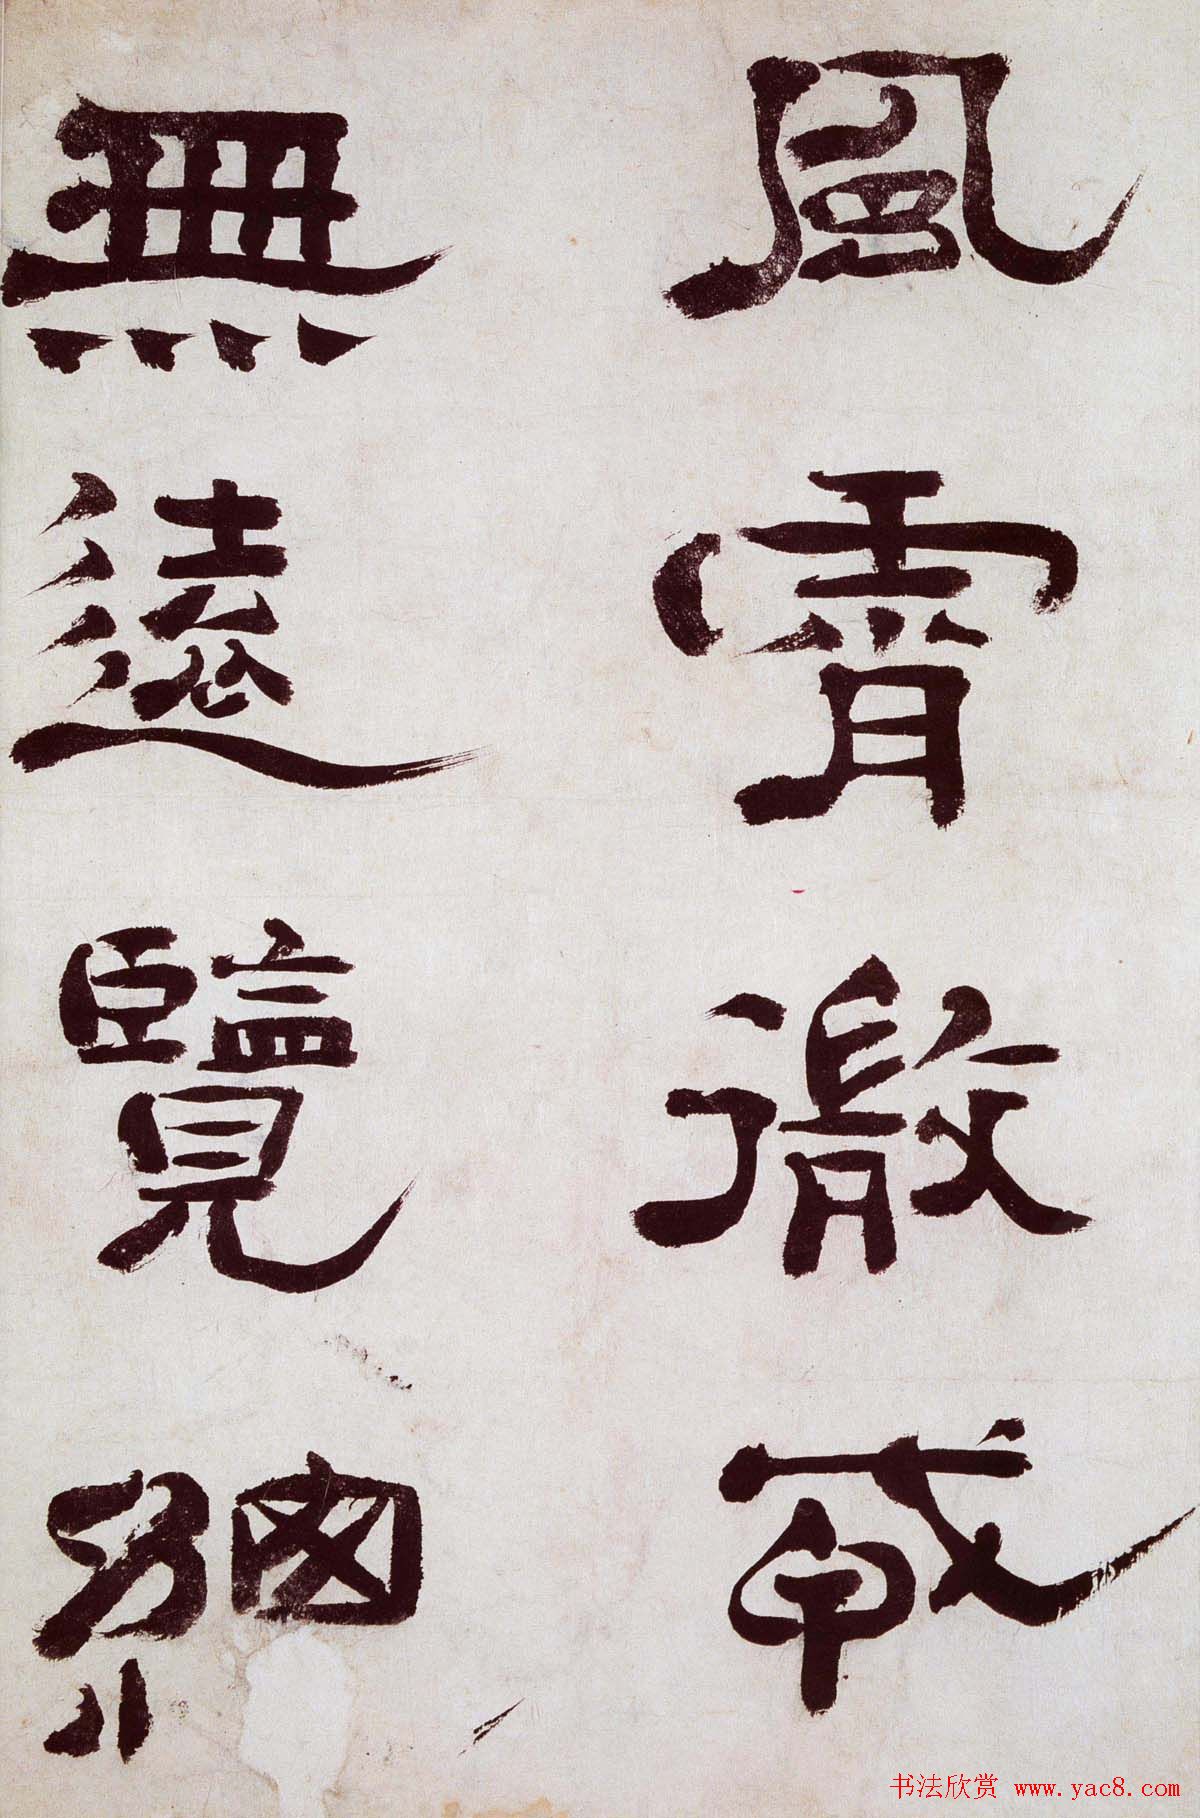 風霄徹
無遠覽細
书法欣赏 www.yac8.com